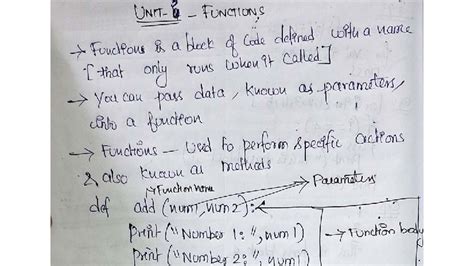 UNIT - - FUNCTIONS
→ Functions is a block of code defined with a name
[that only runs when it called]
→ You can pass data, known as parameters,
into a function
→ Functions – used to perform specific actions
& also known as methods
Function name
Parameters
def add (num1, num2):
print ("Number 1: ", num1)
→ Function body
print ("Number 2: ", num2)